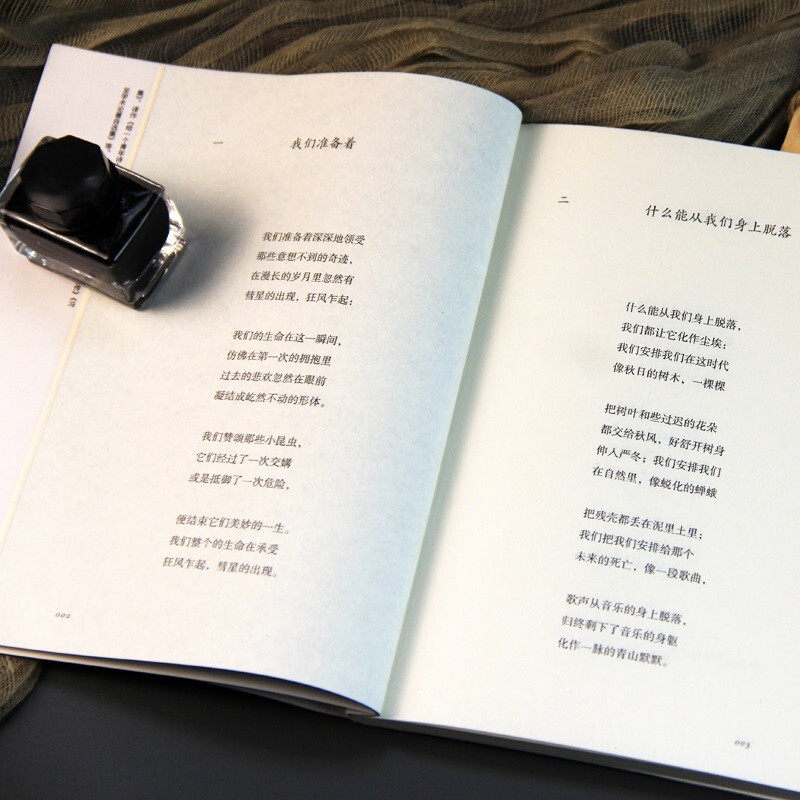 集》，译作《给一个青年诗
至学术论著自选集》等。
一
我们准备着
我们准备着深深地领受
那些意想不到的奇迹，
在漫长的岁月里忽然有
彗星的出现，狂风乍起；
我们的生命在这一瞬间，
仿佛在第一次的拥抱里
过去的悲欢忽然在眼前
凝结成屹然不动的形体。
我们赞颂那些小昆虫，
它们经过了一次交媾
或是抵御了一次危险，
便结束它们美妙的一生。
我们整个的生命在承受
狂风乍起，彗星的出现。
002
二
什么能从我们身上脱落
什么能从我们身上脱落，
我们都让它化作尘埃；
我们安排我们在这时代
像秋日的树木，一棵棵
把树叶和些过迟的花朵
都交给秋风，好舒开树身
伸入严冬；我们安排我们
在自然里，像蜕化的蝉蛾
把残壳都丢在泥里土里；
我们把我们安排给那个
未来的死亡，像一段歌曲，
歌声从音乐的身上脱落，
归终剩下了音乐的身躯
化作一脉的青山默默。
003